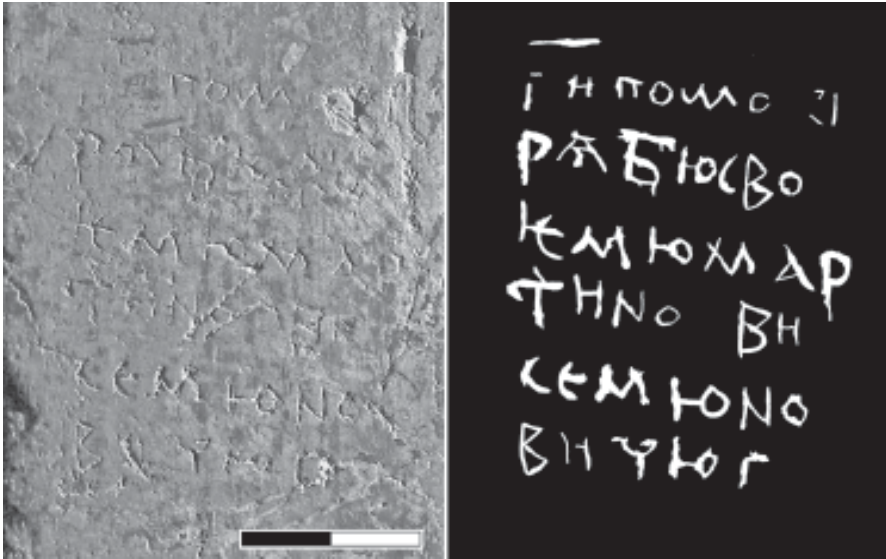 ГН ПОМОЗ
РѦБЮСВО
ѤМЮМАР
ТНNО ВН
СЕМЮNО
ВНЧЮГ